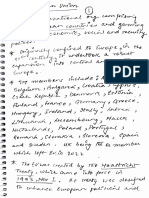 Union
1
international org comprising
European countries and governing
economic, social and security
policies
* Originally confined to Europe, in the
21st century, to undertook a robust
expansion into central and
Europe.
* Top members include:
Belgium, Bulgaria, Croatia, Cyprus,
Estonia
Finland, France, Germany, Greece,
Hungary, Ireland, Italy, Latvia,
Lithuania, Luxembourg, Malta,
Netherlands, Poland, Portugal,
Romania, Slovakia, Slovenia, Spain
Sweden. UK being its a member
which left in 2020
* The EU was created by the Maastricht
Treaty, which came into force in
1993, Nov 1. The treaty was designed
to enhance European political and